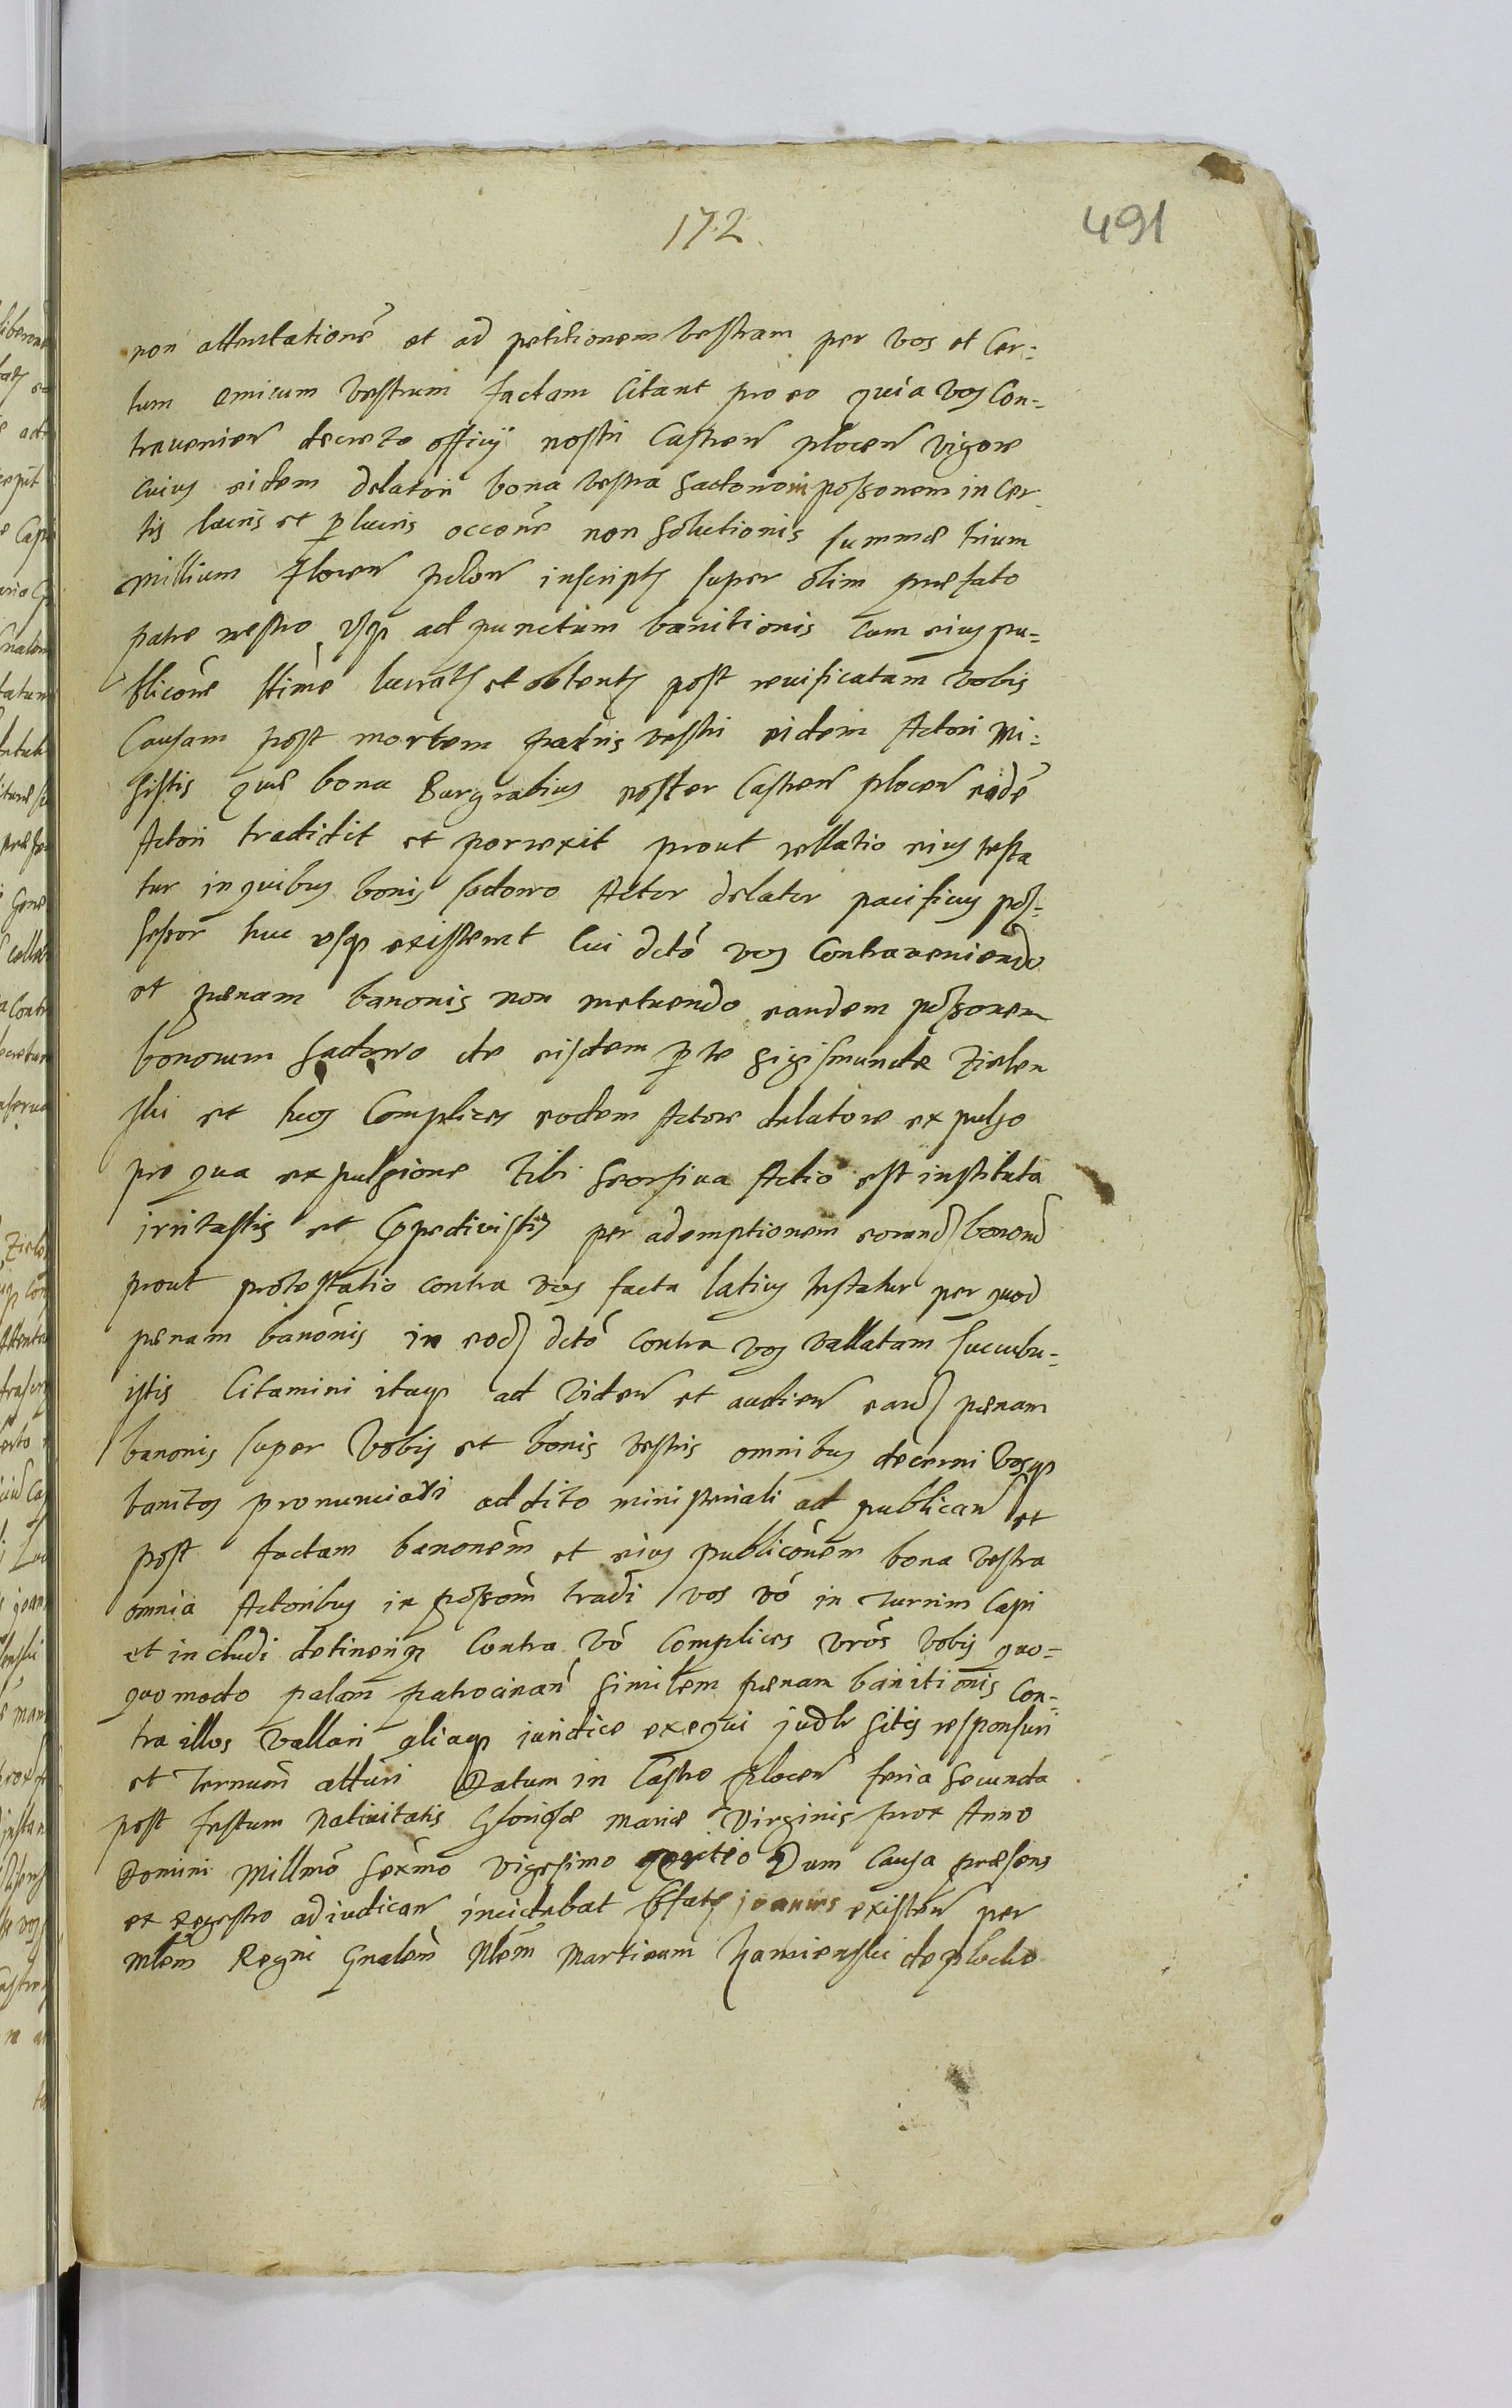 172
491
non attentationē et ad petitionem vestram per vos et Cer:
tum amicum vestrum factam Citant pro eo quia vos Con=
travenien decreto officij nostri Castren plocen vigore
cuius eidem delatori bona vestra Sadowo in possonem in Cer
tis lucris et perlucris occone non Solutionis summæ trium
Millium floren polon inscript super olim præfato
patre vestro usq ad punctum banitionis Cum eius pu=
blicone ltime lucrat et obtent post reuificatam vobis
Causam post mortem patris vestri eidem Actori Mi:
sistis quæ bona Burgrabius noster Castren plocen eidē
Actori tradidit et porrexit prout rellatio eius testa
tur in quibus bonis Sadowo Actor delator pacificus pos=
sessor huc usq existerunt Cui dcto vos Contraveniendo
et pænam banonis non metuendo eandem possonem
bonorum Sadowo de eisdem per te Sigismunde Zielen
ski et tuos Complices eodem Actore delatore expulso
pro qua expulsione Tibi Seorsiua Actio est instituta
irritastis et Impedivistis per ademptionem eorund bonord
prout protestatio contra vos facta latius testatur per quod
pænam banonis in eod dcto contra vos vallatam succubu=
istis Citamini itaq ad Viden et audien eand pænam
banonis super Vobis et bonis vestris omnibus decerni Vosq
banitos pronunciari addito ministeriali ad publican et
post factam banonem et eius publiconem bona vestra
omnia Actoribus in possom tradi vos vo in Turrim Capi
et includi detineriq Contra vo Complices vros vobis quo=
quomodo palam patrocinan Similem pænam banitionis Con=
tra illos Vallari aliaq iuridice exequi judlr Sitis responsuri
et Ternum atturi Datum in Castro plocen feria Secunda
post festum Nativitatis Gloriosæ Mariæ Virginis prox Anno
Domini Millmo Sexmo Vigesimo Dum Causa præsens
ex Regestro adiudican incidebat existen per
Mlem Regni Gnalem Nlem Martinum Kamienski de plocko